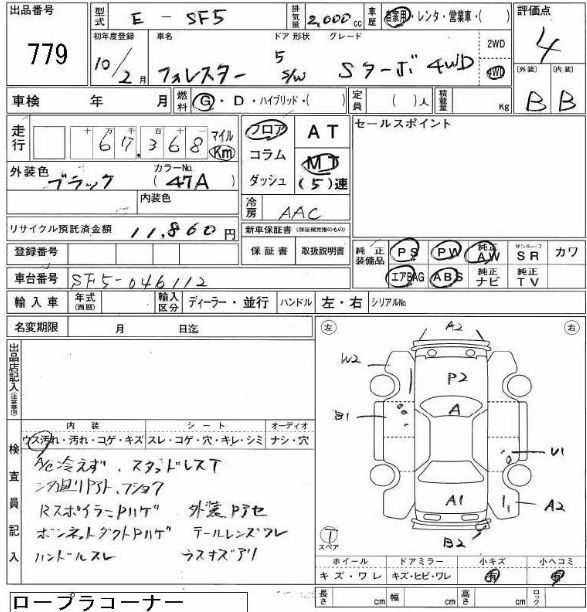 出品番号 779
型式 E - SF5
排気量 2,000 cc
車歴 自家用・レンタ・営業車・( )
評価点 4
初年度登録 10/2月
車名 フォレスター
ドア 形状 5 S/W
グレード Sターボ 4WD
2WD
4WD
(外装) B
(内装) B
車検 年 月
燃料 G・D・ハイブリッド・( )
定員 ( )人
積載量 Kg
走行 十 万 千 百 十 一
67,368 マイル Km
フロア AT
コラム MT
ダッシュ (5)速
セールスポイント
外装色 ブラック
カラーNo. (47A)
内装色
冷房 AAC
リサイクル預託済金額 11,860円
新車保証書(保証継承可のもの)
登録番号
保証書 取扱説明書
純正装備品 PS PW 純正AW サンルーフSR カワ
エアBAG ABS 純正ナビ 純正TV
車台番号 SF5-046112
輸入車 年式(西暦) 輸入区分 ディーラー・並行 ハンドル 左・右 シリアルNo.
名変期限 月 日迄
出品店記入(注意事項)
左 右
A2
W2 P2
B1 A
U1
A1 A2
B2
T
スペア
内装 シート オーディオ
ウス汚れ・汚れ・コゲ・キズ スレ・コゲ・穴・キレ・シミ ナシ・穴
検査員記入
A/C冷えず、スタッドレスT
Rスポイラーハゲ 外装
ボンネットダクトハゲ テールレンズワレ
ハンドルスレ ウスキズアリ
ホイール ドアミラー 小キズ 小ヘコミ
キズ・ワレ キズ・ヒビ・ワレ 有 有
長さ cm 幅 cm 高さ cm ロック
ロープラコーナー